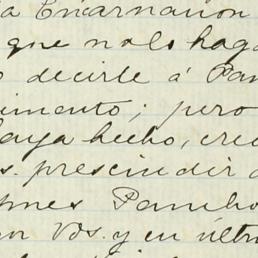 a Encarnación
que no lo haga
decirle á Pan
imento; pero
aya hecho, cre
s. prescindir
mes Pancho
on Vds. y en últim